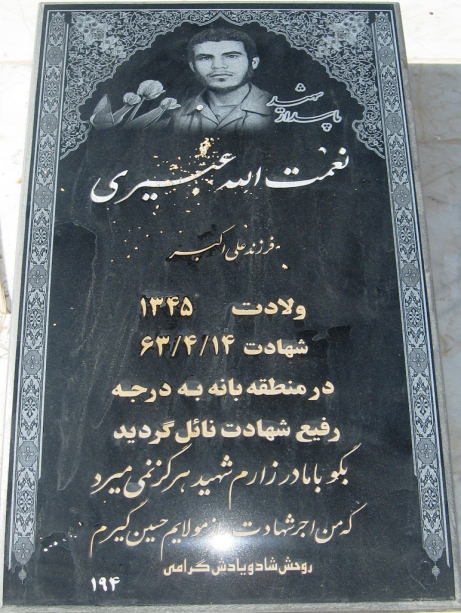 شهید
پاسدار
نعمت الله عبیری
فرزند علی اکبر
ولادت ۱۳۴۵
شهادت ۶۳/۴/۱۴
در منطقه بانه به درجه
رفیع شهادت نائل گردید
بگو با مادر زارم شهید هرگز نمی میرد
که من اجر شهادت از مولایم حسین گیرم
روحش شاد و یادش گرامی
۱۹۴